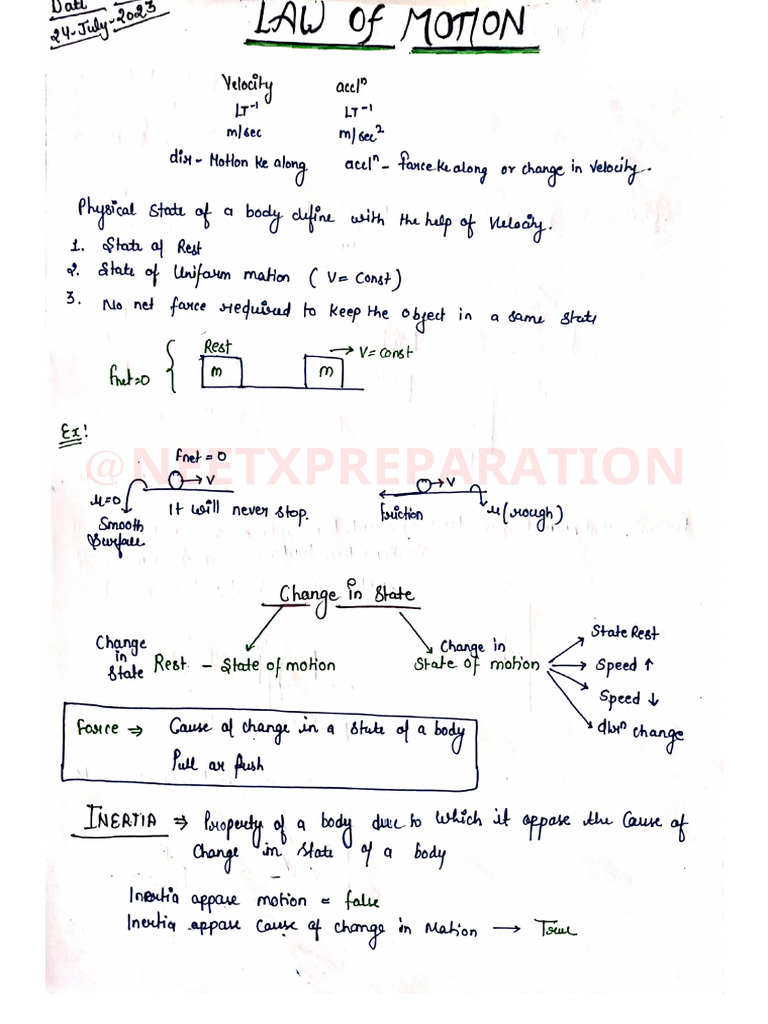 Date
24-July-2023
LAW of MOTION
Velocity accl^n
LT^-1 LT^-1
m/sec m/sec^2
dir - Motion ke along accl^n - force ke along or change in velocity.
Physical state of a body define with the help of velocity.
1. State of Rest
2. State of Uniform motion ( V = Const)
3. No net force required to keep the object in a same state
Fnet=0 { Rest m m → V = const
Ex!
@NEETXPREPARATION
Fnet = 0
→ V → V
μ=0 It will never stop. friction μ(rough)
Smooth
Surface
Change in State
Change in State Rest - State of motion
Change in State of motion
State Rest
Speed ↑
Speed ↓
dir^n change
Force ⇒ Cause of change in a state of a body
Pull or Push
INERTIA ⇒ Property of a body due to which it oppose the Cause of
Change in state of a body
Inertia oppose motion = false
Inertia oppose Cause of change in Motion → True